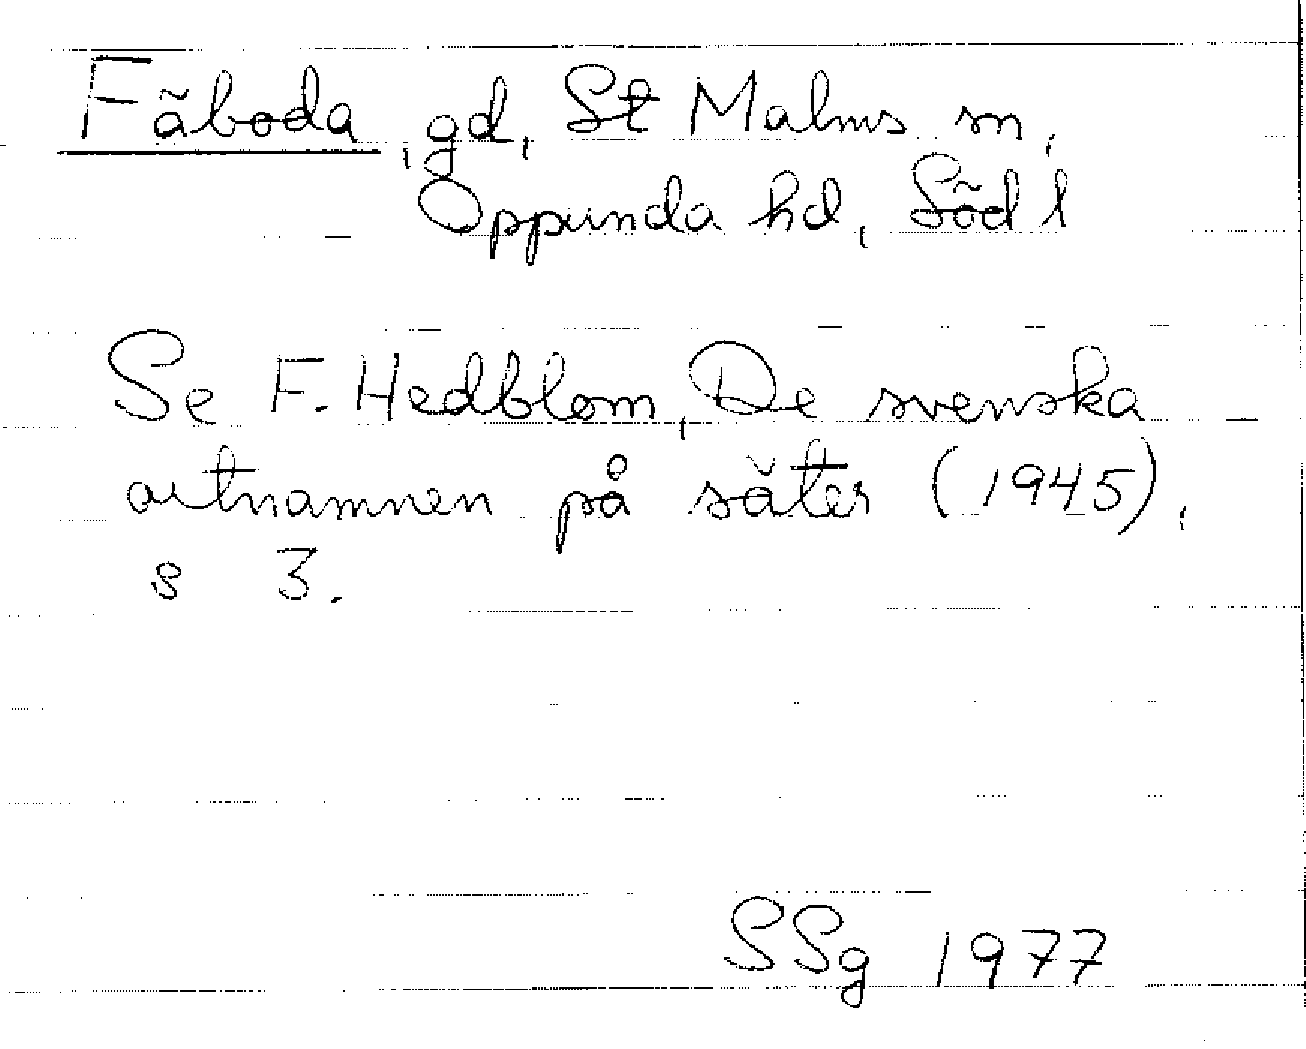 Fäboda, gd, St Malms sn,
Oppunda hd, Södl
Se F. Hedblom, De svenska
ortnamnen på säter (1945),
s 3.
SSg 1977